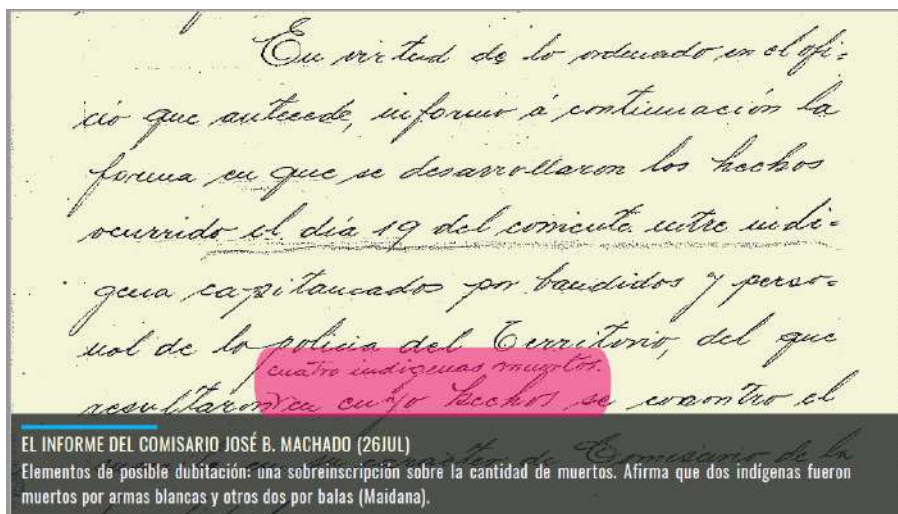 En virtud de lo ordenado en el ofi-
cio que antecede, informo á continuación la
forma en que se desarrollaron los hechos
ocurrido el día 19 del corriente entre indi-
gena capitaneados por bandidos y perso-
nal de la policia del Territorio, del que
cuatro indigenas muertos.
resultaron en cuyo hechos se encontro el
en su caracter de Comisario de la
EL INFORME DEL COMISARIO JOSÉ B. MACHADO (26JUL)
Elementos de posible dubitación: una sobreinscripción sobre la cantidad de muertos. Afirma que dos indígenas fueron
muertos por armas blancas y otros dos por balas (Maidana).